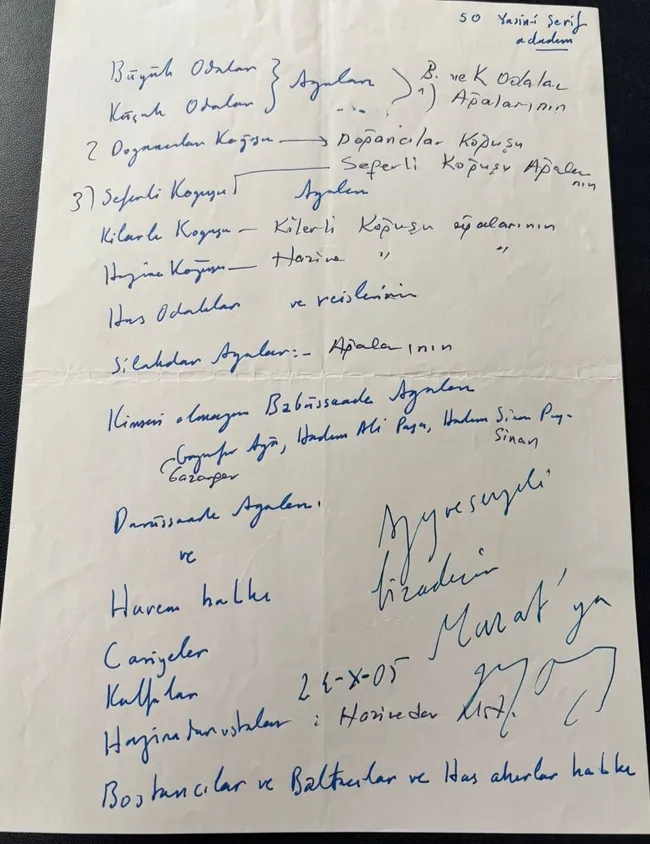 50 Yasini Şerif
adadım
Büyük Odaları } Ağaları ) B. ve K Odalar
Küçük Odaları 1) Ağalarının
2 Doğancılar Koğuşu → Doğancılar Koğuşu
Seferli Koğuşu Ağalarının
3) Seferli Koğuşu Ağaları
Kilerli Koğuşu — Kilerli Koğuşu ağalarının
Hazine Koğuşu — Hazine " "
Has Odalılar ve reislerinin
Silahdar Ağalar:- Ağalarının
Kimsesi olmayan Babüssaade Ağaları
Gazanfer Ağa, Hadım Ali Paşa, Hadım Sinan Paş.
Gazanfer Sinan
Darüssaade Ağaları
ve
Harem halkı
Cariyeler
Kalfalar
Hazinedar ustalar : Hazinedar Ust.
Bostancılar ve Baltacılar ve Has ahırlar halkı
Aziz ve sevgili
biraderim
Murat'ya
24-X-05